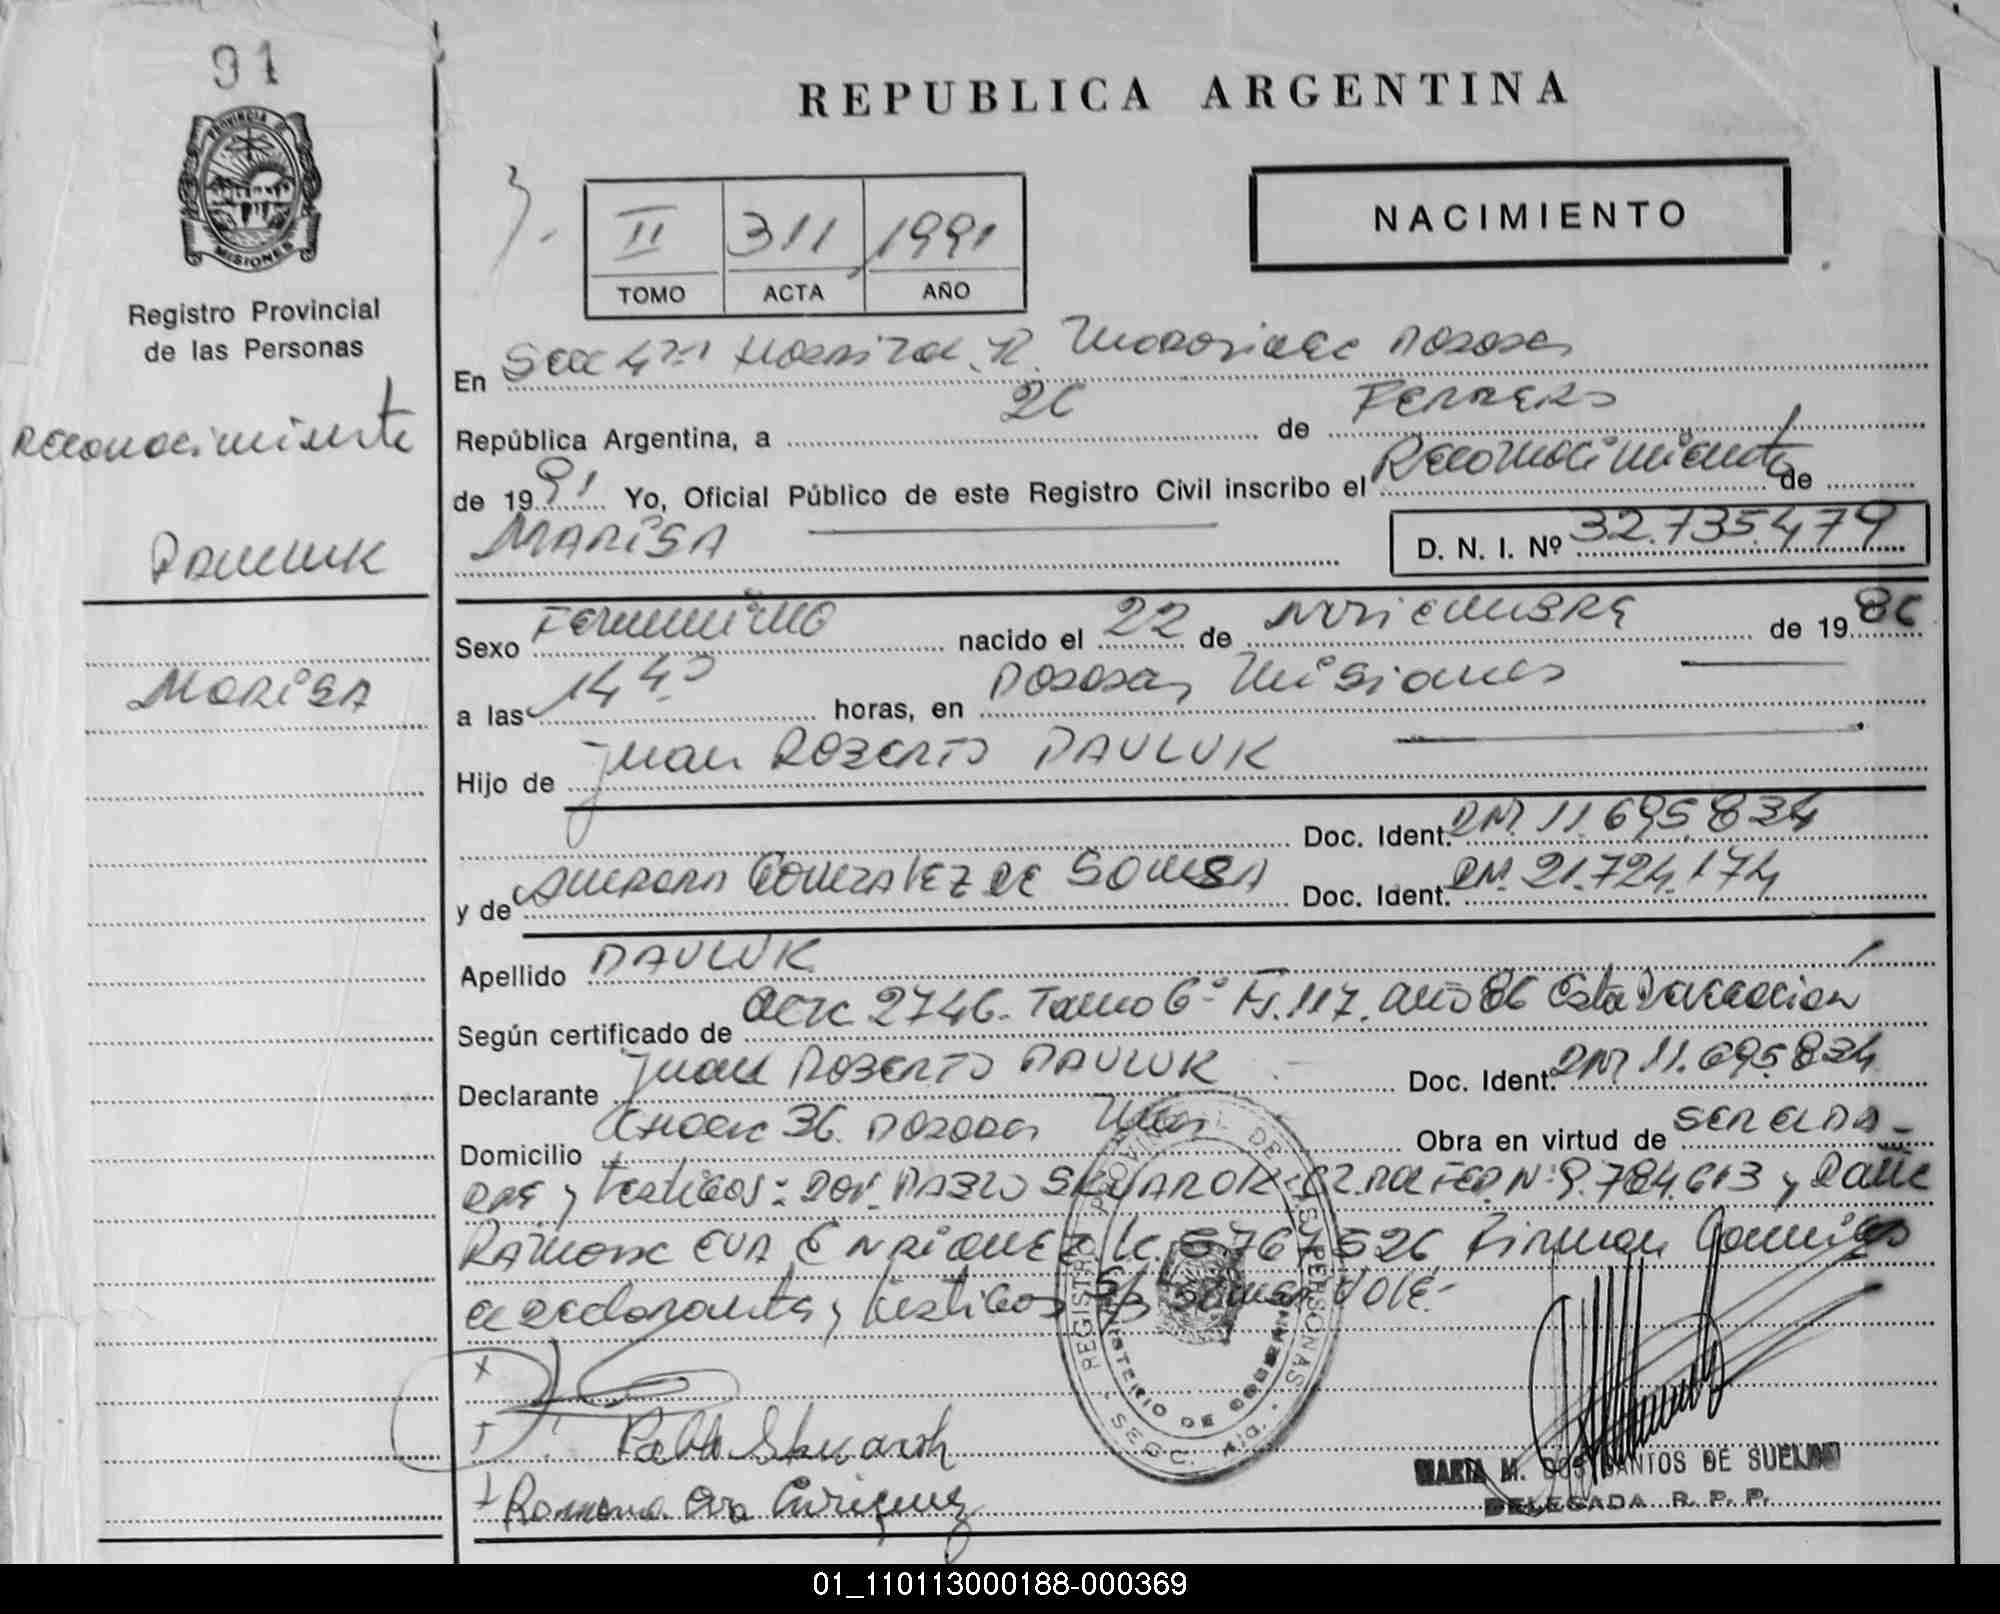 91
REPUBLICA ARGENTINA
PROVINCIA DE
MISIONES
Registro Provincial
de las Personas
II 311 1991
TOMO ACTA AÑO
NACIMIENTO
En Secc 4ta Hospital R. Madariaga Posadas
República Argentina, a 26 de Febrero
de 1991 Yo, Oficial Público de este Registro Civil inscribo el Reconocimiento de
MARISA
D. N. I. Nº 32.735.479
Reconocimiento
Pauluk
Marisa
Sexo Femenino nacido el 22 de Noviembre de 1986
a las 14 40 horas, en Posadas, Misiones
Hijo de Juan Roberto PAULUK
Doc. Ident. DNI 11.695.834
y de Aurora Gonzalez de Sousa Doc. Ident. DNI. 21.724.174
Apellido PAULUK
Según certificado de Acta 2746. Tomo 6º Fº.117. año 86 Esta Declaración
Declarante Juan Roberto PAULUK Doc. Ident. DNI 11.695.834
Domicilio Chacra 36. Posadas Mnes Obra en virtud de ser el pa-
dre y testigos: Don Pablo Skuarok Nº 9.784.613 y Doña
Ramona Eva Enriquez Lc. 526 Firman conmigo
el declarante y testigos VALE.-
Pablo Skuarok
Ramona Eva Enriquez
REGISTRO PROVINCIAL DE LAS PERSONAS
MINISTERIO DE GOBIERNO
MARIA M. DOS SANTOS DE SUELDO
DELEGADA R. P. P.
01_110113000188-000369